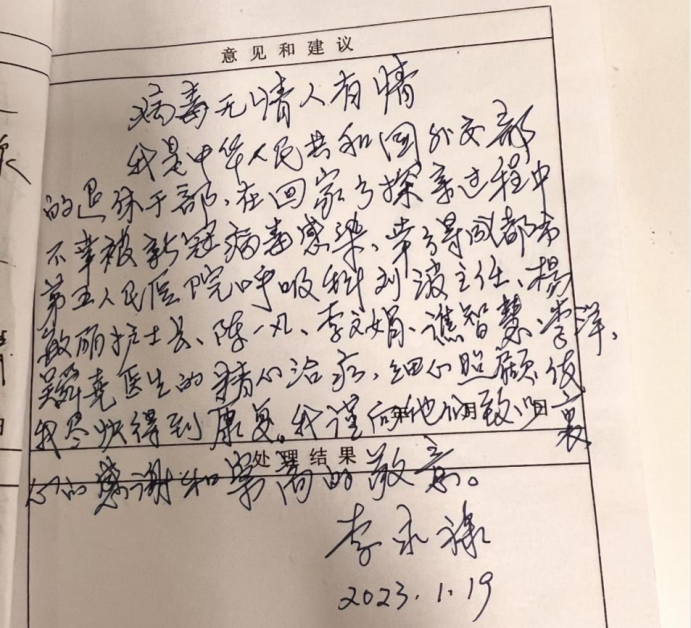 意见和建议
病毒无情人有情
我是中华人民共和国外交部
的退休干部、在回家乡探亲过程中
不幸被新冠病毒感染、幸得成都市
第五人民医院呼吸科刘波主任、杨
敏丽护士长、陈一凡、李文娟、谯智慧、李洋、
医生的精心治疗、细心照顾使
我尽快得到康复。我谨向他们致以衷
心的感谢和崇高的敬意。
处理结果
李永禄
2023.1.19